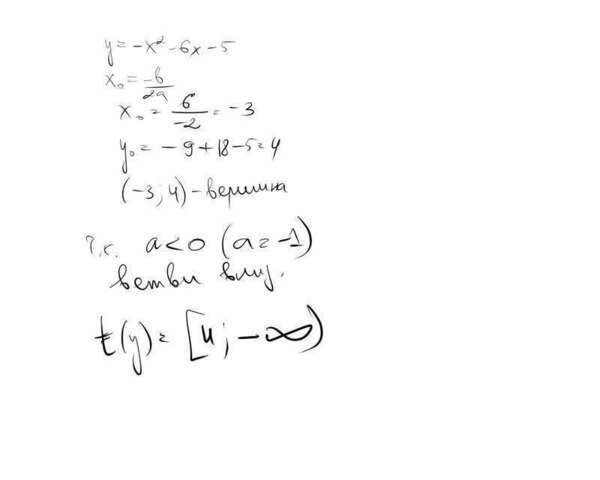 y = -x² - 6x - 5
x₀ = -b/2a
x₀ = 6/-2 = -3
y₀ = -9 + 18 - 5 = 4
(-3; 4) - вершина
т.к. a < 0 (a = -1)
ветви вниз.
E(y) = [4; -∞)